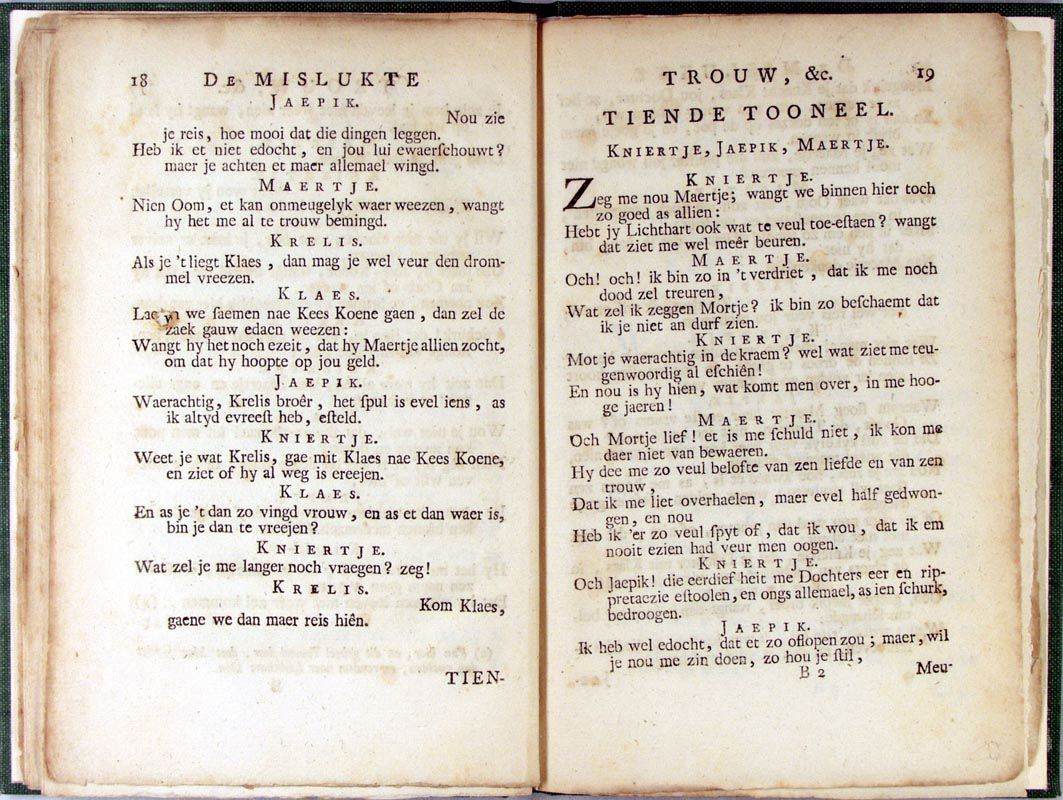 18 DE MISLUKTE
JAEPIK.
Nou zie
je reis, hoe mooi dat die dingen leggen.
Heb ik et niet edocht, en jou lui ewaerſchouwt?
maer je achten et maer allemael wingd.
MAERTJE.
Nien Oom, et kan onmeugelyk waer weezen, wangt
hy het me al te trouw bemingd.
KRELIS.
Als je 't liegt Klaes, dan mag je wel veur den drom-
mel vreezen.
KLAES.
we ſaemen nae Kees Koene gaen, dan zel de
zaek gauw edaen weezen:
Wangt hy het noch ezeit, dat hy Maertje allien zocht,
om dat hy hoopte op jou geld.
JAEPIK.
Waerachtig, Krelis broêr, het ſpul is evel iens, as
ik altyd evreeſt heb, eſteld.
KNIERTJE.
Weet je wat Krelis, gae mit Klaes nae Kees Koene,
en ziet of hy al weg is ereejen.
KLAES.
En as je 't dan zo vingd vrouw, en as et dan waer is,
bin je dan te vreejen?
KNIERTJE.
Wat zel je me langer noch vraegen? zeg!
KRELIS.
Kom Klaes,
gaene we dan maer reis hiên.
TIEN-
TROUW, &c. 19
TIENDE TOONEEL.
KNIERTJE, JAEPIK, MAERTJE.
KNIERTJE.
Zeg me nou Maertje; wangt we binnen hier toch
zo goed as allien:
Hebt jy Lichthart ook wat te veul toe-eſtaen? wangt
dat ziet me wel meêr beuren.
MAERTJE.
Och! och! ik bin zo in 't verdriet, dat ik me noch
dood zel treuren,
Wat zel ik zeggen Mortje? ik bin zo beſchaemt dat
ik je niet an durf zien.
KNIERTJE.
Mot je waerachtig in de kraem? wel wat ziet me teu-
genwoordig al eſchiên!
En nou is hy hien, wat komt men over, in me hoo-
ge jaeren!
MAERTJE.
Och Mortje lief! et is me ſchuld niet, ik kon me
daer niet van bewaeren.
Hy dee me zo veul belofte van zen liefde en van zen
trouw,
Dat ik me liet overhaelen, maer evel half gedwon-
gen, en nou
Heb ik 'er zo veul ſpyt of, dat ik wou, dat ik em
nooit ezien had veur men oogen.
KNIERTJE.
Och Jaepik! die eerdief heit me Dochters eer en rip-
pretaezie eſtoolen, en ongs allemael, as ien ſchurk,
bedroogen.
JAEPIK.
Ik heb wel edocht, dat et zo oflopen zou; maer, wil
je nou me zin doen, zo hou je ſtil,
B 2 Meu-